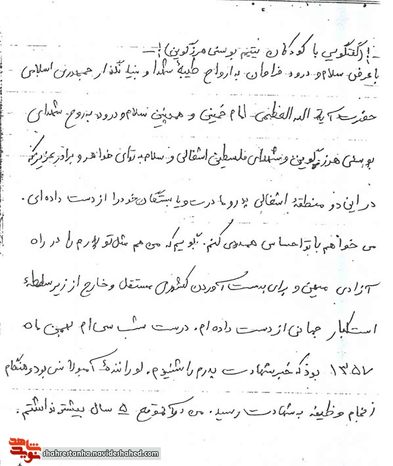 -!(گفتگویی با کودکان یتیم بوسنی هرزگوین)!-
با عرض سلام و درود فراوان به ارواح طیبۀ شهدا و بنیانگذار جمهوری اسلامی
حضرت آیة الله العظمی امام خمینی و همچنین سلام و درود به روح شهدای
بوسنی هرزگوین و شهدای فلسطین اشغالی و سلام به تو ای خواهر و برادر عزیز که
در این دو منطقۀ اشغالی پدر و مادرت و یا بستگان خود را از دست داده ای.
می خواهم با تو احساس همدردی کنم. بگویم که من هم مثل تو پدرم را در راه
آزادی میهن و برای بدست آوردن کشوری مستقل و خارج از زیر سلطۀ
استکبار جهانی از دست داده ام. درست شب سی ام بهمن ماه
۱۳۵۷ بود که خبر شهادت پدرم را شنیدم. او رانندۀ آمبولانس بود و هنگام
انجام وظیفه به شهادت رسید. من در آن موقع ۵ سال بیشتر نداشتم.
نوید شاهد
shahrestanha.navideshahed.com